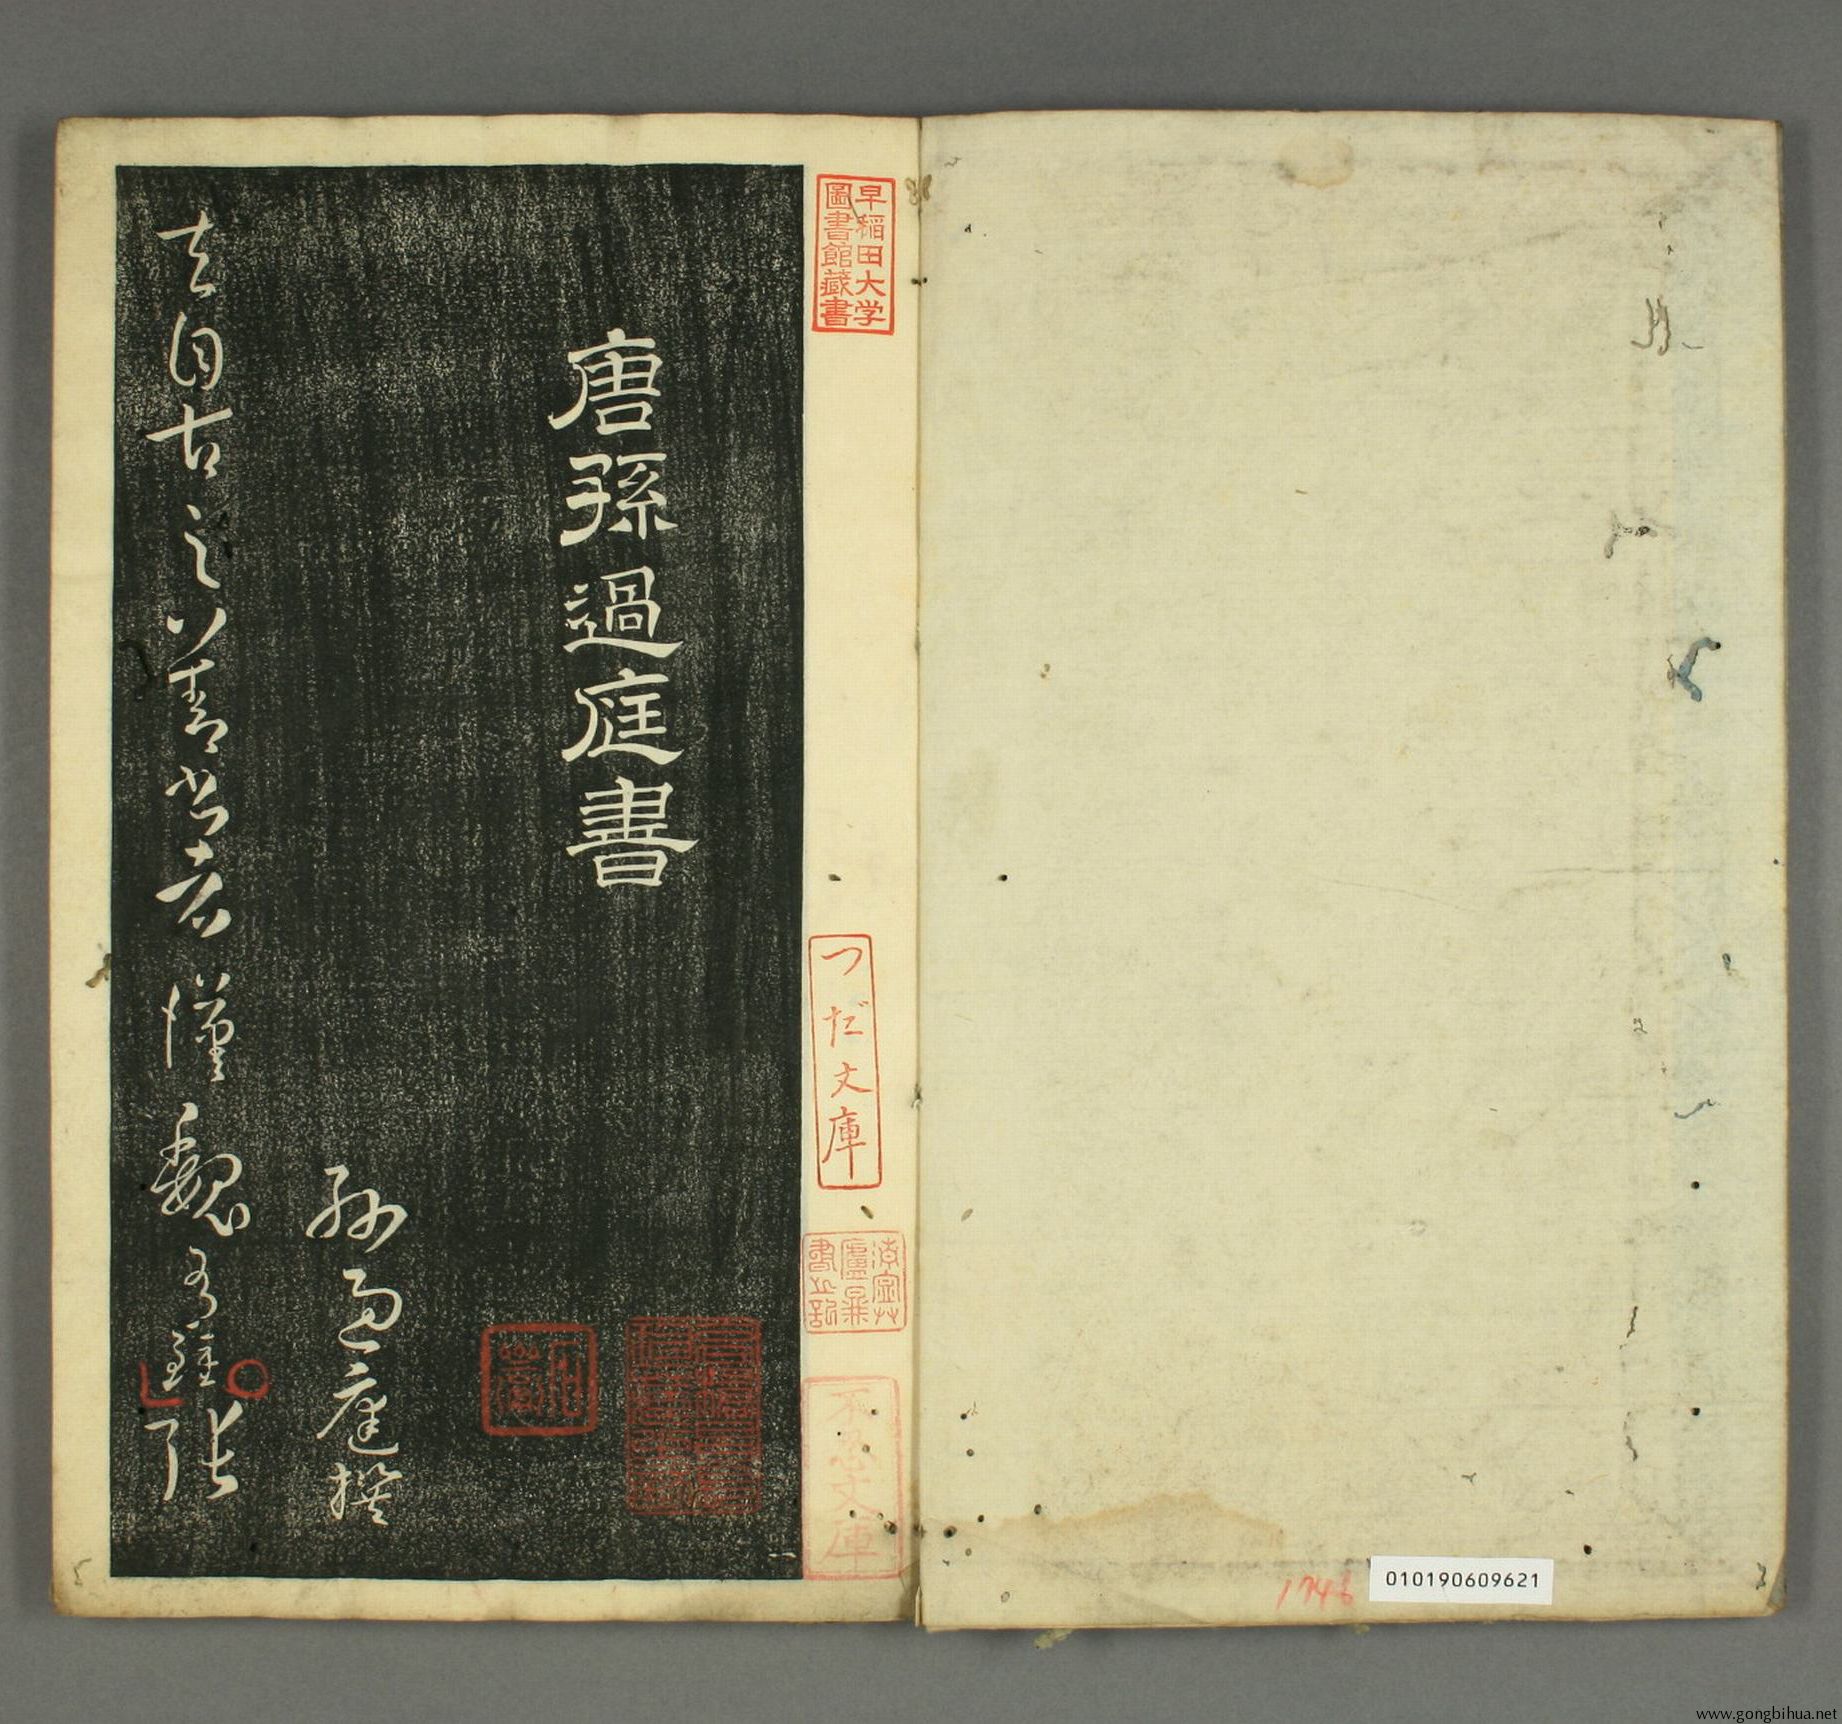 早稲田大学
圖書館藏書
唐孫過庭書
孫過庭撰
夫自古之善書者漢魏有鍾張
つだ文庫
不忍文庫
010190609621
1746
www.gongbihua.net